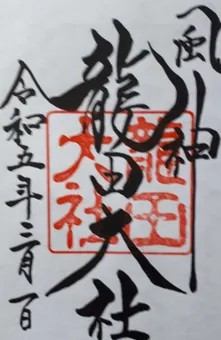 風神
龍田大社
龍田
大社
令和五年二月一日